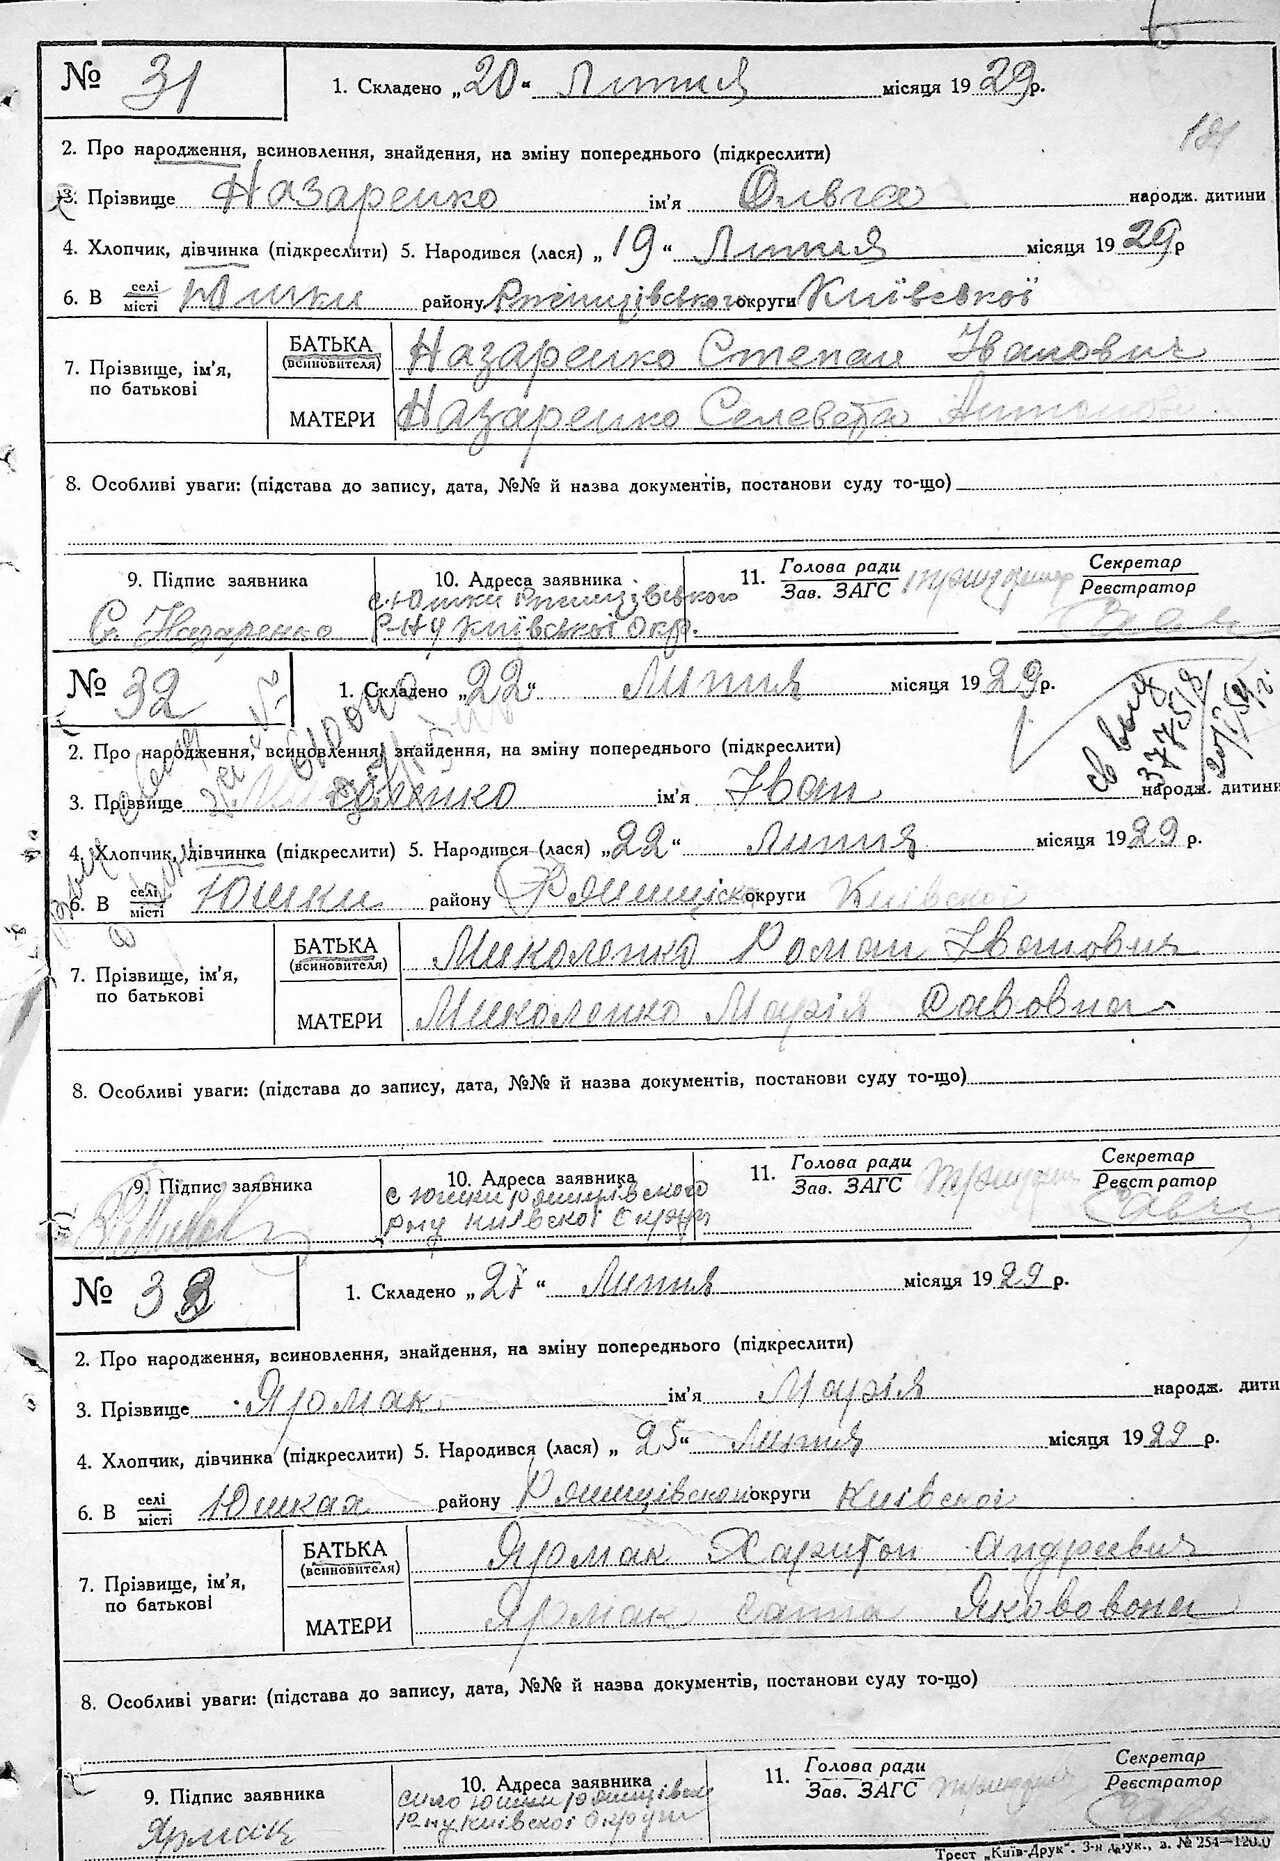 № 31 1. Складено „20“ Липня місяця 1929 р.
181
2. Про народження, всиновлення, знайдення, на зміну попереднього (підкреслити)
3. Прізвище Назаренко ім'я Ольга народж. дитини
4. Хлопчик, дівчинка (підкреслити) 5. Народився (лася) „19“ Липня місяця 1929 р
6. В селі/місті Юшки району Ржищівського округи Київської
7. Прізвище, ім'я, по батькові
БАТЬКА (всиновителя) Назаренко Степан Іванович
МАТЕРИ Назаренко Селевета
8. Особливі уваги: (підстава до запису, дата, №№ й назва документів, постанови суду то-що)
9. Підпис заявника 10. Адреса заявника 11. Голова ради/Зав. ЗАГС Секретар/Реєстратор
с. Юшки Ржищівського
С. Назаренко р-ну Київської Окр.
№ 32 1. Складено „22“ Липня місяця 1929 р.
2. Про народження, всиновлення, знайдення, на зміну попереднього (підкреслити)
3. Прізвище ім'я Іван народж. дитини
4. Хлопчик, дівчинка (підкреслити) 5. Народився (лася) „22“ Липня місяця 1929 р.
6. В селі/місті Юшки району округи Київскої
7. Прізвище, ім'я, по батькові
БАТЬКА (всиновителя) Миколенко Роман Іванович
МАТЕРИ Миколенко Марія Савовна
8. Особливі уваги: (підстава до запису, дата, №№ й назва документів, постанови суду то-що)
9. Підпис заявника 10. Адреса заявника 11. Голова ради/Зав. ЗАГС Секретар/Реєстратор
с Юшки
рну Київскої Округи
№ 33 1. Складено „27“ Липня місяця 1929 р.
2. Про народження, всиновлення, знайдення, на зміну попереднього (підкреслити)
3. Прізвище Ярмак ім'я Марія народж. дити
4. Хлопчик, дівчинка (підкреслити) 5. Народився (лася) „25“ Липня місяця 1929 р.
6. В селі/місті Юшках району округи Київскої
7. Прізвище, ім'я, по батькові
БАТЬКА (всиновителя) Ярмак Харитон Андреевич
МАТЕРИ Ярмак
8. Особливі уваги: (підстава до запису, дата, №№ й назва документів, постанови суду то-що)
9. Підпис заявника 10. Адреса заявника 11. Голова ради/Зав. ЗАГС Секретар/Реєстратор
село Юшки
Ярмак рну Київскої Округи
Трест „Київ-Друк“. 3-я друк., з. № 254—120.0